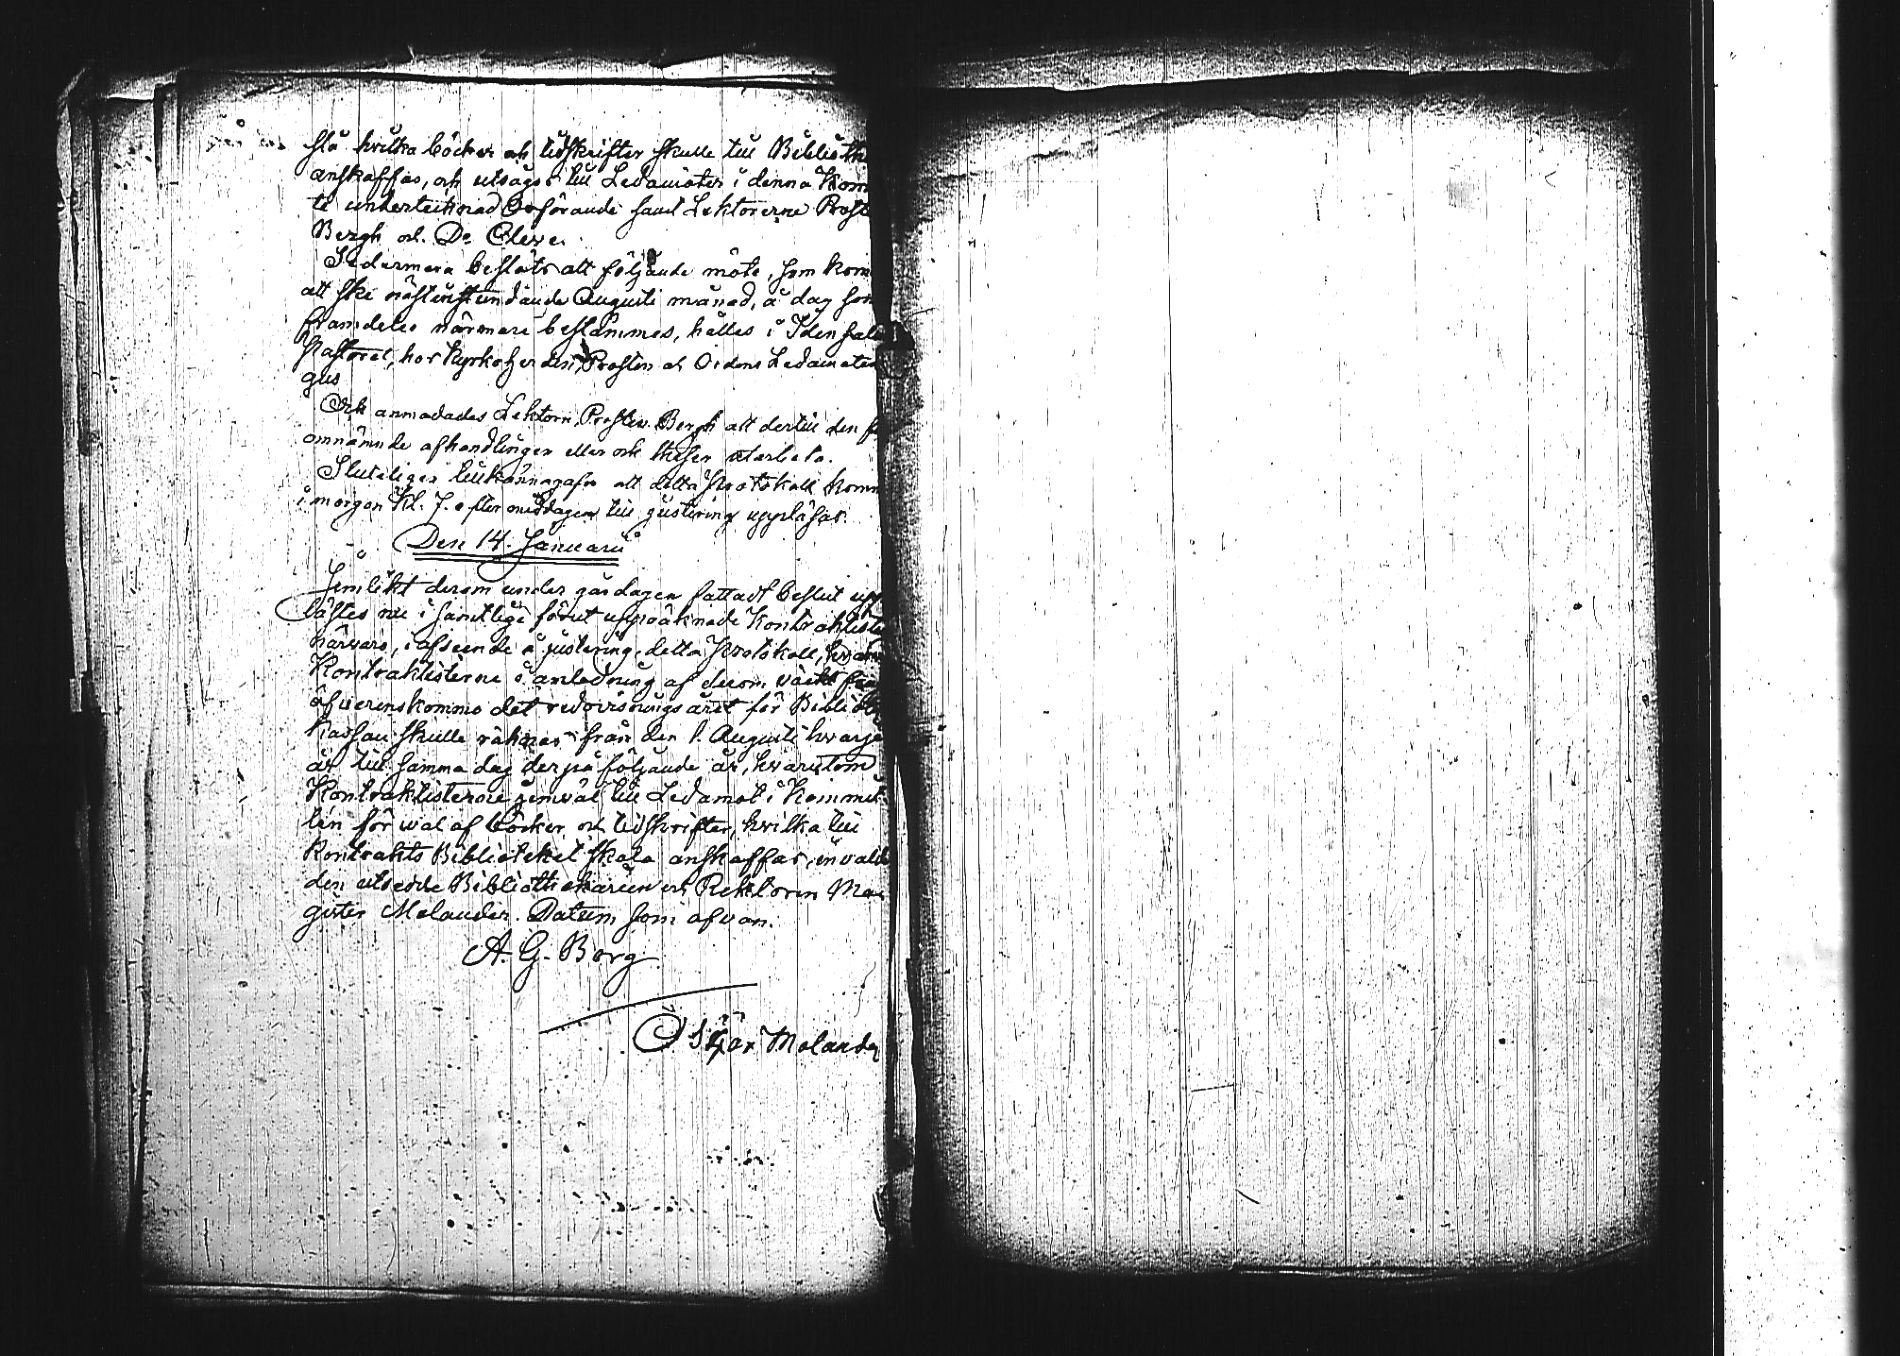 slå hvilka böcker och tidskrifter skulle till Biblioth
anskaffas, och utsågos till Ledamöter i denna Kom
té undertecknad Ordförande samt Lektorerne Proste
Bergh och Dr Cleve.
Sedermera beslöts att följande möte, som kom
att ske nästinstundande Augusti månad, å dag som
framdeles närmare bestämmes, hålles i Idensal
Pastorat, hos Kyrkoherden, Prosten och Ordens Ledamoten
gus
Och anmodades Lektorn, Prosten Bergh att dertill den
omnämnde afhandlingen eller och theser utarbeta.
Sluteligen tillkännagafs att detta Protokoll komm
i morgon Kl. 7. eftermiddagen till justering uppläsas.
Den 14. Januarii
Jemlikt derom under gårdagen fattadt beslut upp
lästes nu i samtlige förut uppräknade Kontraktister
närvaro, i afseende å justering, detta Protokoll,
Kontraktisterne i anledning af derom väckt
öfverenskommo det redovisningsåret för Biblioth
Kassan skulle räknas från den 1. Augusti hvarje
år till samma dag derpå följande år, hvarutom
Kontraktisterne jemväl till Ledamot i Kommit
tén för wal af böcker och tidskrifter, hvilka till
Kontrakts Biblioteket skola anskaffas, invalde
den utsedde Bibliothekarien och Rektoren Ma
gister Melander. Datum som ofvan.
A. G. Borg
Oskar Melander